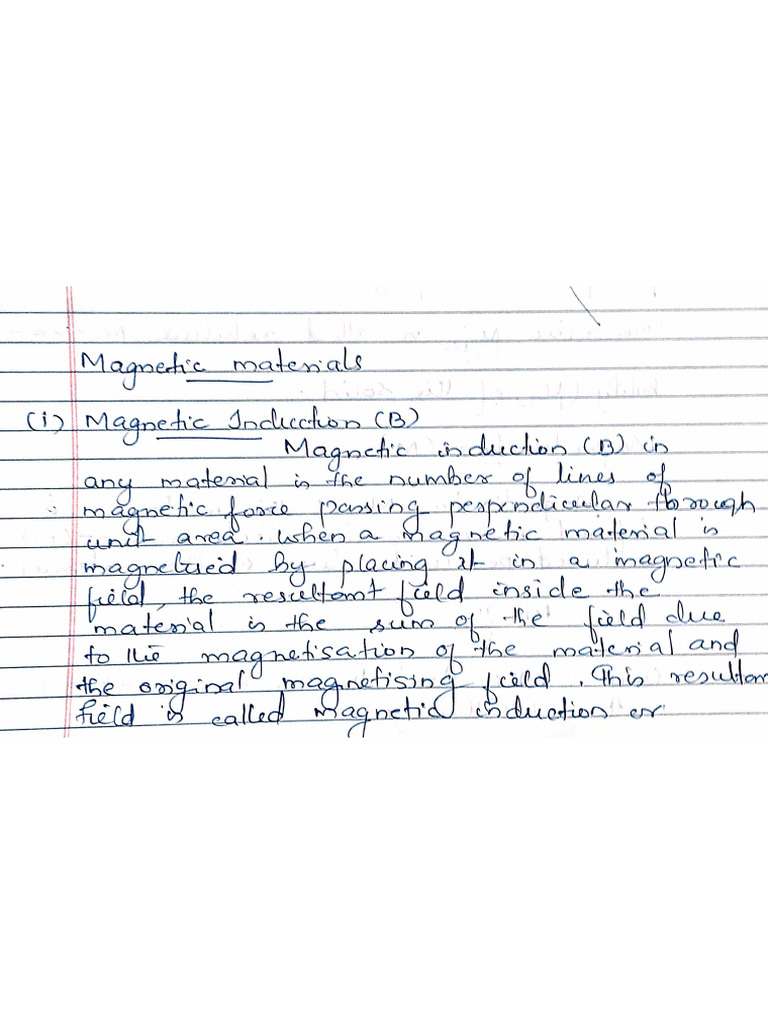 Magnetic materials
(i) Magnetic Induction (B)
Magnetic induction (B) in
any material is the number of lines of
magnetic force passing perpendicular through
unit area. when a magnetic material is
magnetised by placing it in a magnetic
field, the resultant field inside the
material is the sum of the field due
to the magnetisation of the material and
the original magnetising field. This resultan
field is called magnetic induction or